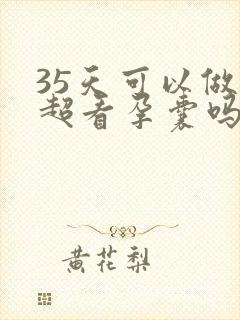 35天可以做
超看孕囊吗
黄花梨